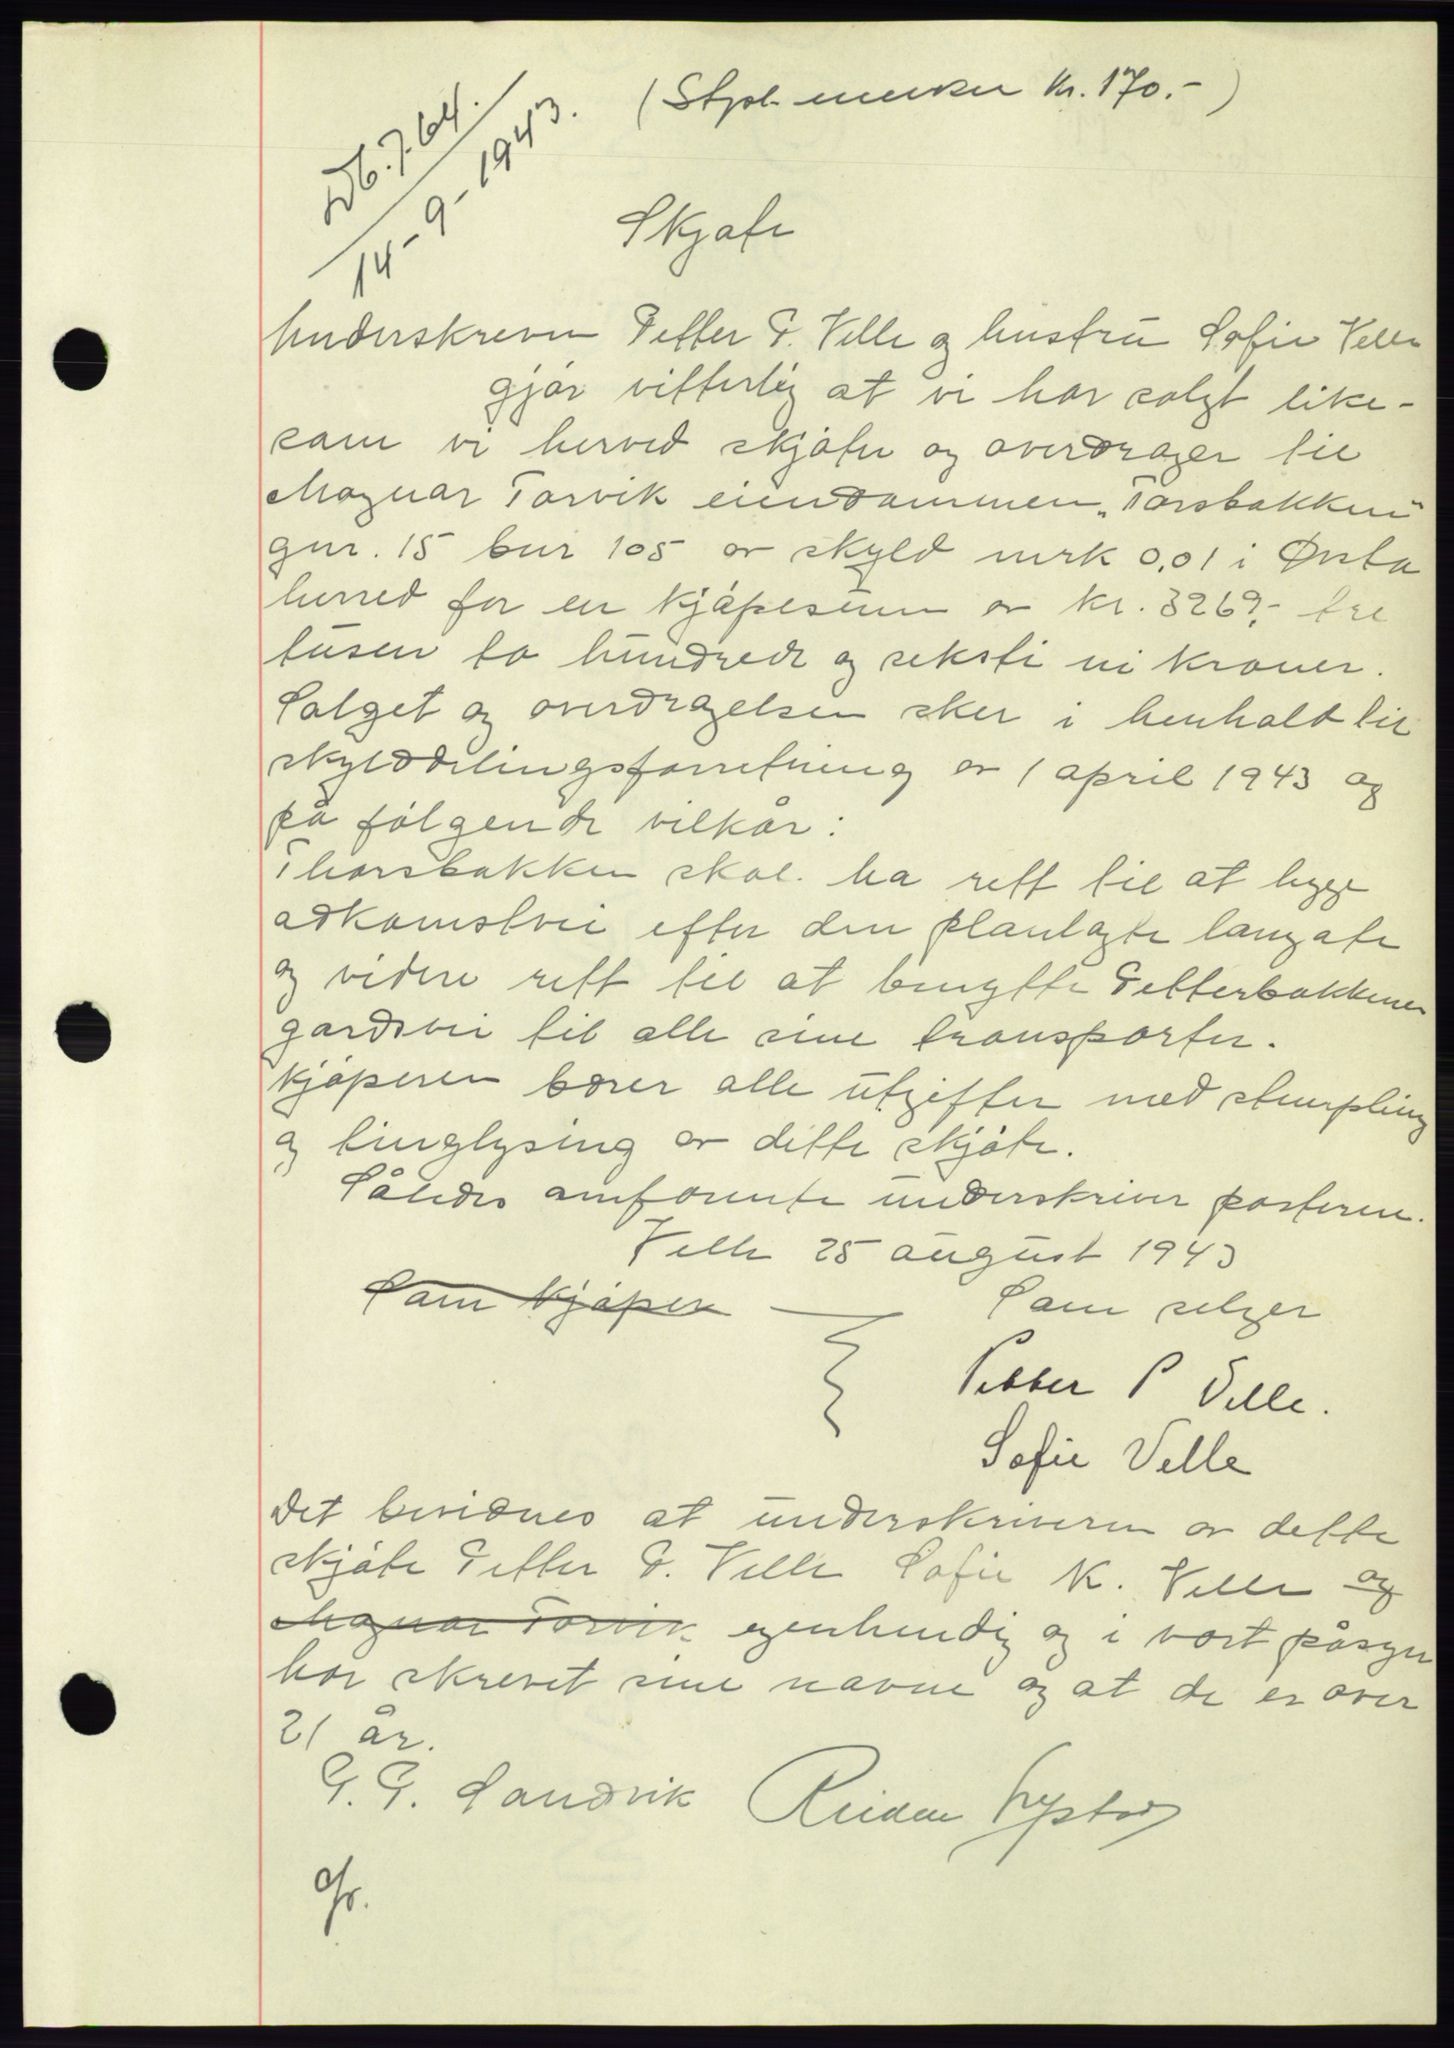 (Stpl. merker kr. 170.-)
Db. 764.
14-9-1943.
Skjøte
Underskreven Petter P. Velle og hustru Sofie Velle
gjør vitterlig at vi har solgt like-
som vi herved skjøter og overdrager til
Magnar Torvik eiendommen „Torsbakken"
gnr. 15 bnr 105 av skyld mrk 0,01 i Ørsta
herred for en kjøpesum av kr. 3269,- tre
tusen to hundrede og seksti ni kroner.
Salget og overdragelsen sker i henhold til
skylddelingsforretning av 1 april 1943 og
på følgende vilkår:
Thorsbakken skal ha rett til at bygge
adkomstvei efter den planlagte
og videre rett til at benytte Petterbakkenes
gardsvei til alle sine transporter.
Kjøperen bærer alle utgifter med stempling
og tinglysing av dette skjøte.
Således omforente underskriver partene.
Velle 25 august 1943
Som kjøper Som selger
Petter P Velle.
Sofie Velle
Det bevidnes at underskriveren av dette
skjøte Petter P. Velle Sofie K. Velle og
Magnar Torvik egenhendig og i vort påsyn
har skrevet sine navne og at de er over
21 år.
P. P. Sandvik Reidar